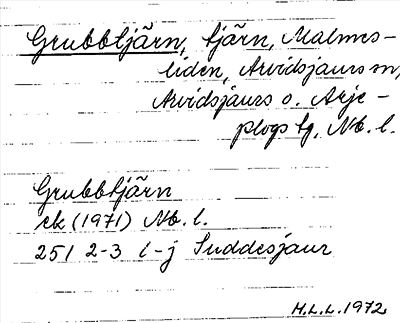 Grubbtjärn, tjärn, Malmes-
liden, Arvidsjaurs sn,
Arvidsjaurs o. Arje-
plogs tg, Nb. l.
Grubbtjärn
ek (1971) Nb. l.
251 2-3 i-j Suddesjaur
H.L.L. 1972